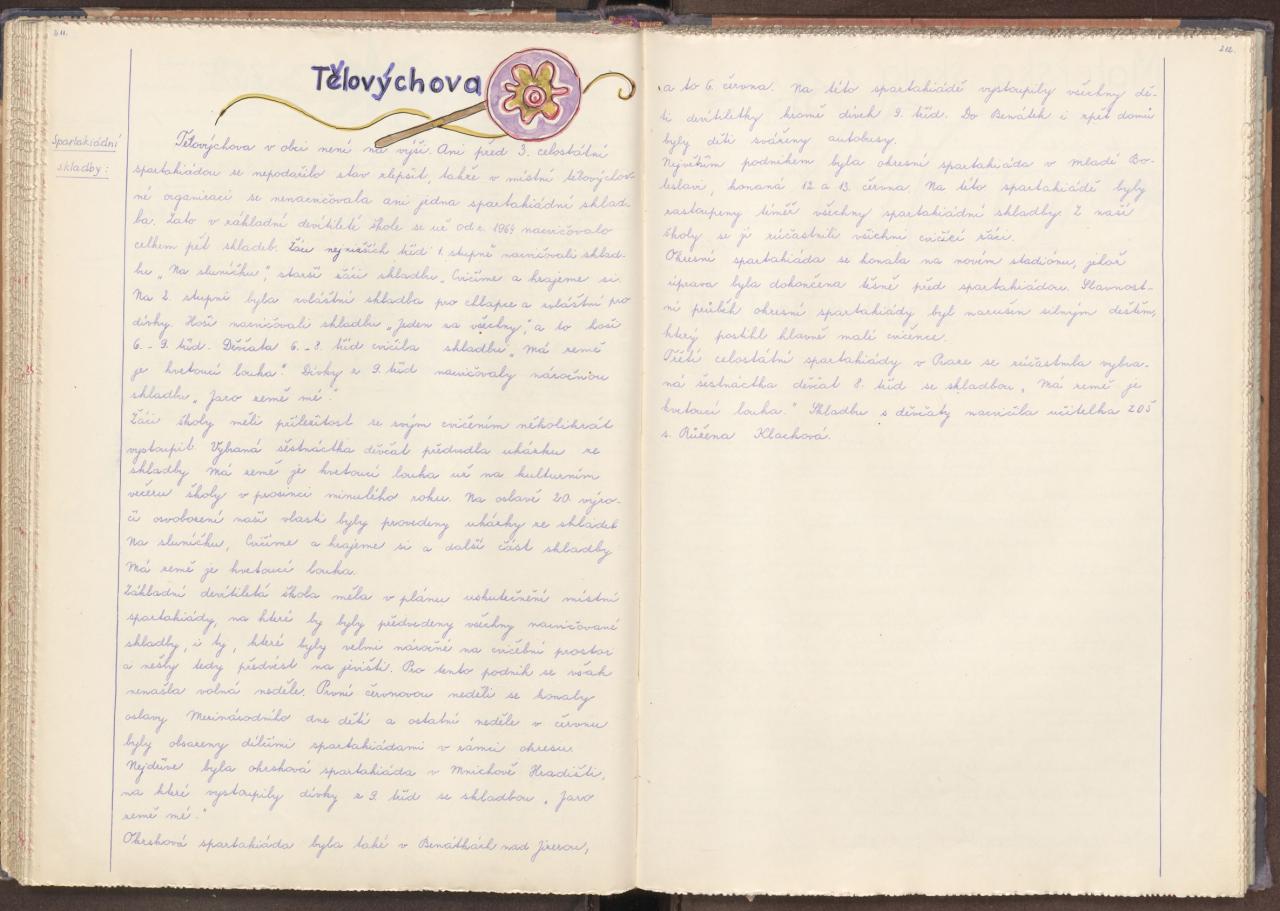 211.
Tělovýchova
Spartakiádní
skladby:
Tělovýchova v obci není na výši. Ani před 3. celostátní
spartakiádou se nepodařilo stav zlepšit, takže v místní tělovýchov-
né organizaci se nenacvičovala ani jedna spartakiádní sklad-
ba. Zato v základní devítileté škole se již od r. 1964 nacvičovalo
celkem pět skladeb. Žáci nejnižších tříd 1. stupně nacvičovali sklad-
bu „Na sluníčku", starší žáci skladbu „Cvičíme a hrajeme si.
Na 2. stupni byla zvláštní skladba pro chlapce a zvláštní pro
dívky. Hoši nacvičovali skladbu „Jeden za všechny", a to hoši
6.-9. tříd. Děvčata 6.-8. tříd cvičila skladbu „Má země
je kvetoucí louka". Dívky z 9. tříd nacvičovaly náročnou
skladbu „Jaro země mé".
Žáci školy měli příležitost se svým cvičením několikrát
vystoupit. Vybraná šestnáctka děvčat předvedla ukázku ze
skladby Má země je kvetoucí louka už na kulturním
večeru školy v prosinci minulého roku. Na oslavě 20. výro-
čí osvobození naší vlasti byly provedeny ukázky ze skladeb
Na sluníčku, Cvičíme a hrajeme si a další část skladby
Má země je kvetoucí louka.
Základní devítiletá škola měla v plánu uskutečnění místní
spartakiády, na které by byly předvedeny všechny nacvičované
skladby, i ty, které byly velmi náročné na cvičební prostor
a nešly tedy předvést na jevišti. Pro tento podnik se však
nenašla volná neděle. První červnovou neděli se konaly
oslavy Mezinárodního dne dětí a ostatní neděle v červnu
byly obsazeny dílčími spartakiádami v rámci okresu.
Nejdříve byla okrsková spartakiáda v Mnichově Hradišti,
na které vystoupily dívky z 9. tříd se skladbou „Jaro
země mé."
Okrsková spartakiáda byla také v Benátkách nad Jizerou,
212.
a to 6. června. Na této spartakiádě vystoupily všechny dě-
ti devítiletky kromě dívek 9. tříd. Do Benátek i zpět domů
byly děti sváženy autobusy.
Největším podnikem byla okresní spartakiáda v Mladé Bo-
leslavi, konaná 12. a 13. června. Na této spartakiádě byly
zastoupeny téměř všechny spartakiádní skladby. Z naší
školy se jí zúčastnili všichni cvičící žáci.
Okresní spartakiáda se konala na novém stadiónu, jehož
úprava byla dokončena těsně před spartakiádou. Slavnost-
ní průběh okresní spartakiády byl narušen silným deštěm,
který postihl hlavně malé cvičence.
Třetí celostátní spartakiády v Praze se zúčastnila vybra-
ná šestnáctka děvčat 8. tříd se skladbou „Má země je
kvetoucí louka." Skladbu s děvčaty nacvičila učitelka ZDŠ
s. Růžena Klachová.